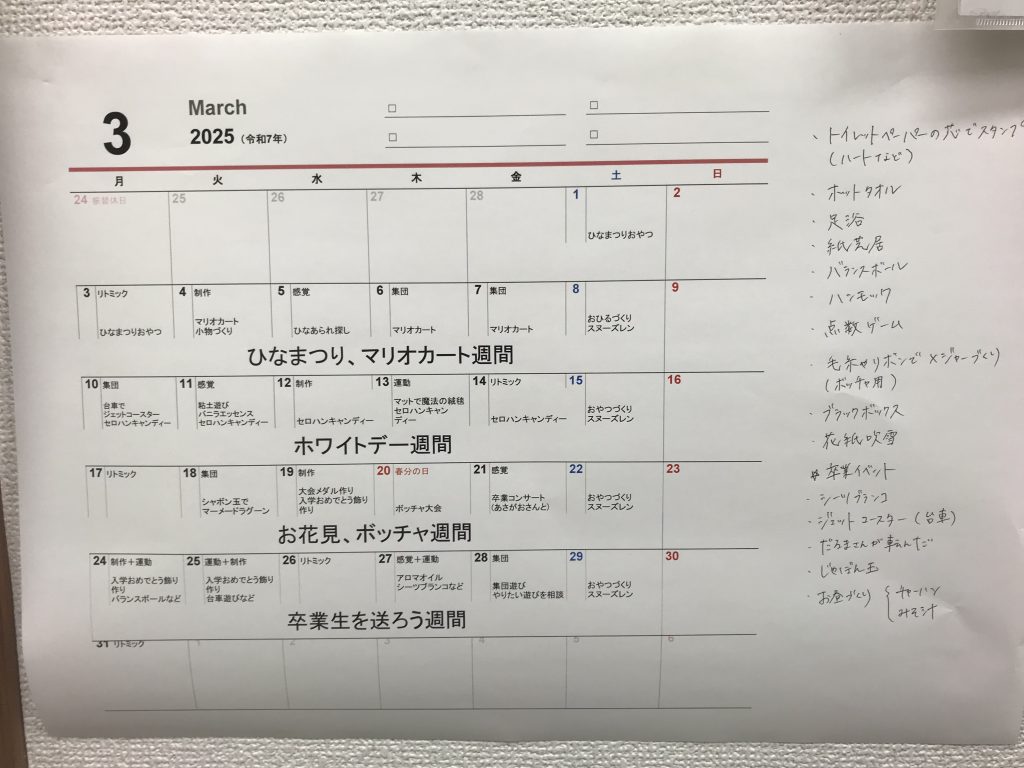 3
March
2025 (令和7年)
□ □
□ □
月 火 水 木 金 土 日
24 振替休日 25 26 27 28 1 2
ひなまつりおやつ
3 リトミック 4 制作 5 感覚 6 集団 7 集団 8 9
ひなまつりおやつ
マリオカート
小物づくり
ひなあられ探し
マリオカート
マリオカート
おひるづくり
スヌーズレン
ひなまつり、マリオカート週間
10 集団 11 感覚 12 制作 13 運動 14 リトミック 15 16
台車で
ジェットコースター
セロハンキャンディー
粘土遊び
バニラエッセンス
セロハンキャンディー
セロハンキャンディー
マットで魔法の絨毯
セロハンキャン
ディー
セロハンキャンディー
おやつづくり
スヌーズレン
ホワイトデー週間
17 リトミック 18 集団 19 制作 20 春分の日 21 感覚 22 23
シャボン玉で
マーメードラグーン
大会メダル作り
入学おめでとう飾り
作り
ボッチャ大会
卒業コンサート
(あさがおさんと)
おやつづくり
スヌーズレン
お花見、ボッチャ週間
24 制作+運動 25 運動+制作 26 リトミック 27 感覚+運動 28 集団 29 30
入学おめでとう飾り
作り
バランスボールなど
入学おめでとう飾り
作り
台車遊びなど
アロマオイル
シーツブランコなど
集団遊び
やりたい遊びを相談
おやつづくり
スヌーズレン
卒業生を送ろう週間
31 リトミック 1 2 3 4 5 6
・トイレットペーパーの芯でスタンプ
(ハートなど)
・ホットタオル
・足浴
・紙芝居
・バランスボール
・ハンモック
・点数ゲーム
・毛糸やリボンで メジャーづくり
(ボッチャ用)
・ブラックボックス
・花紙吹雪
卒業イベント
・シーツブランコ
・ジェットコースター(台車)
・だるまさんが転んだ
・じゃぼん玉
・お昼づくり { チャーハン
みそ汁